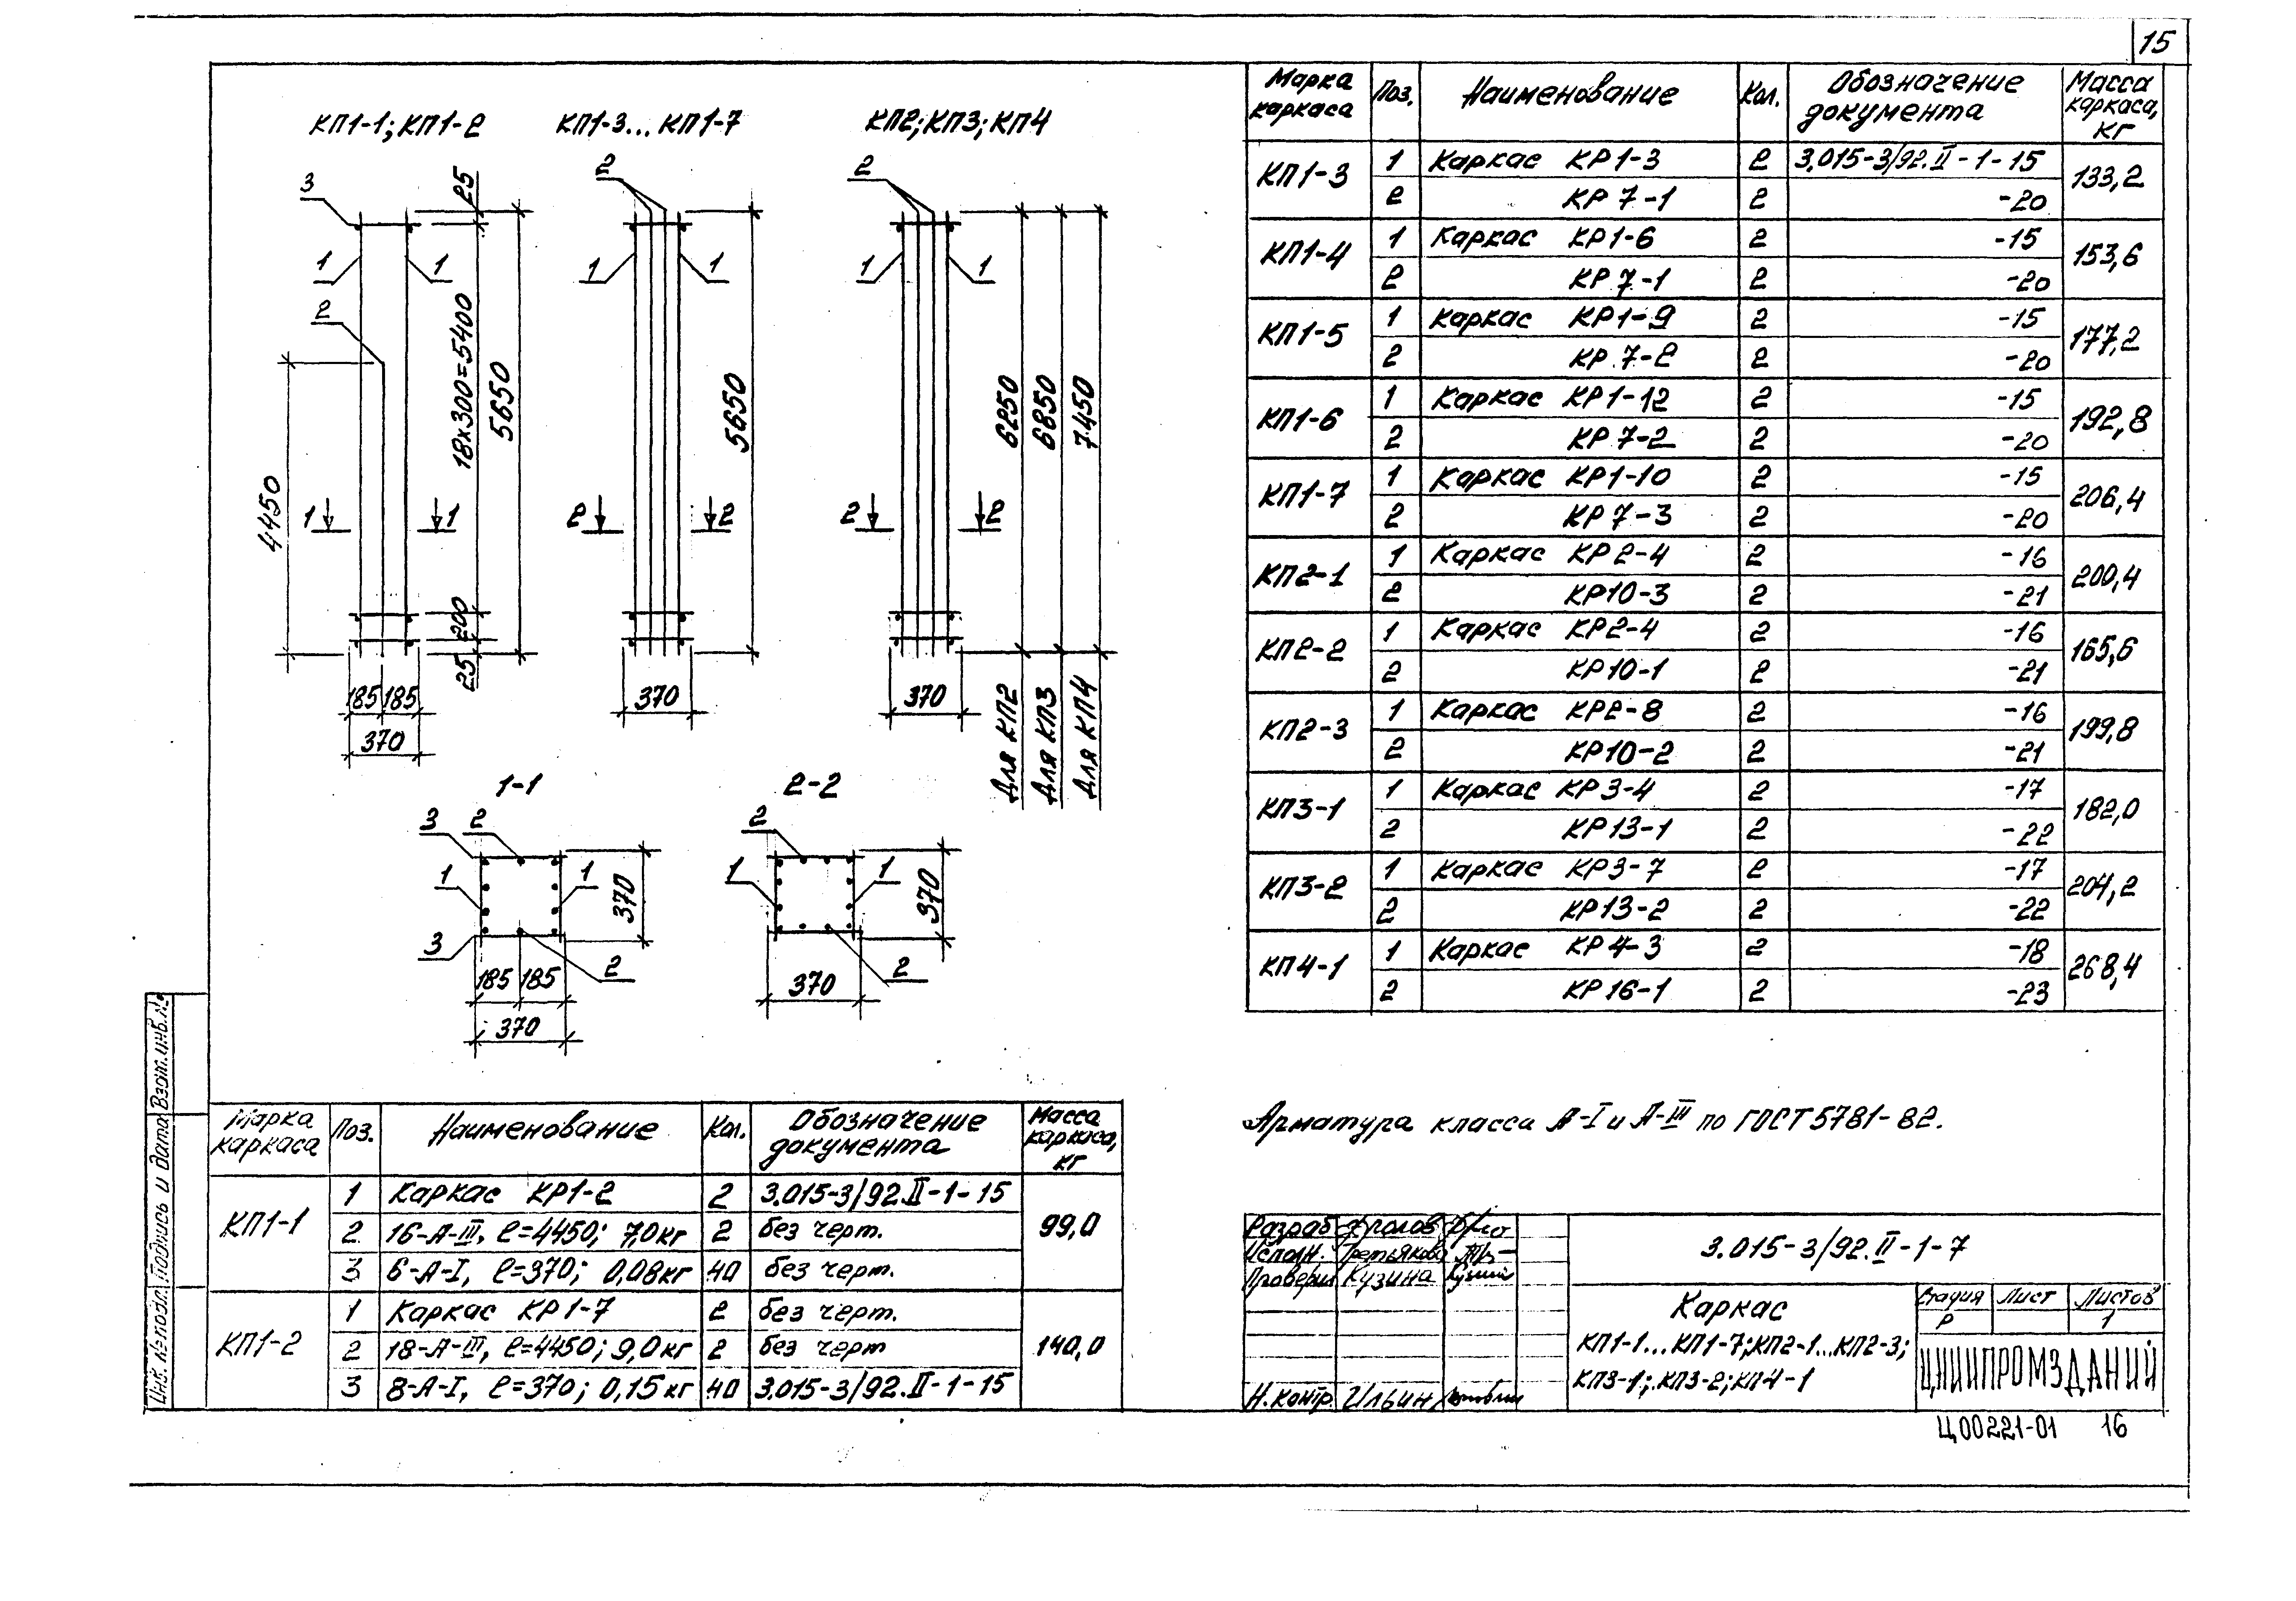 15
КП1-1; КП1-2
КП1-3... КП1-7
КП2; КП3; КП4
3
1
1
2
4450
1
1
25
18х300=5400
5650
200
25
185
185
370
2
1
1
5650
2
2
370
2
1
1
6250
6850
7450
2
2
370
Для КП2
Для КП3
Для КП4
1-1
3
2
1
1
370
3
2
185
185
370
2-2
2
1
1
370
2
370
Марка каркаса | Поз. | Наименование | Кол. | Обозначение документа | Масса каркаса, кг
КП1-3 | 1 | Каркас КР1-3 | 2 | 3.015-3/92.II-1-15 | 133,2
2 | КР7-1 | 2 | -20
КП1-4 | 1 | Каркас КР1-6 | 2 | -15 | 153,6
2 | КР7-1 | 2 | -20
КП1-5 | 1 | Каркас КР1-9 | 2 | -15 | 177,2
2 | КР7-2 | 2 | -20
КП1-6 | 1 | Каркас КР1-12 | 2 | -15 | 192,8
2 | КР7-2 | 2 | -20
КП1-7 | 1 | Каркас КР1-10 | 2 | -15 | 206,4
2 | КР7-3 | 2 | -20
КП2-1 | 1 | Каркас КР2-4 | 2 | -16 | 200,4
2 | КР10-3 | 2 | -21
КП2-2 | 1 | Каркас КР2-4 | 2 | -16 | 165,6
2 | КР10-1 | 2 | -21
КП2-3 | 1 | Каркас КР2-8 | 2 | -16 | 199,8
2 | КР10-2 | 2 | -21
КП3-1 | 1 | Каркас КР3-4 | 2 | -17 | 182,0
2 | КР13-1 | 2 | -22
КП3-2 | 1 | Каркас КР3-7 | 2 | -17 | 204,2
2 | КР13-2 | 2 | -22
КП4-1 | 1 | Каркас КР4-3 | 2 | -18 | 268,4
2 | КР16-1 | 2 | -23
Марка каркаса | Поз. | Наименование | Кол. | Обозначение документа | Масса каркаса, кг
КП1-1 | 1 | Каркас КР1-2 | 2 | 3.015-3/92.II-1-15 | 99,0
2 | 16-А-III, ℓ=4450; 7,0кг | 2 | без черт.
3 | 6-А-I, ℓ=370; 0,08кг | 40 | без черт.
КП1-2 | 1 | Каркас КР1-7 | 2 | без черт. | 140,0
2 | 18-А-III, ℓ=4450; 9,0кг | 2 | без черт
3 | 8-А-I, ℓ=370; 0,15кг | 40 | 3.015-3/92.II-1-15
Арматура класса А-I и А-III по ГОСТ 5781-82.
Разраб Фролов
Исполн. Третьякова
Проверил Кузина
Н.контр. Ильин
3.015-3/92.II-1-7
Каркас
КП1-1...КП1-7; КП2-1...КП2-3;
КП3-1; КП3-2; КП4-1
Стадия | Лист | Листов
Р | 1
ЦНИИПРОМЗДАНИЙ
Ц00221-01 16
Инв. № подл. Подпись и дата Взам.инв.№